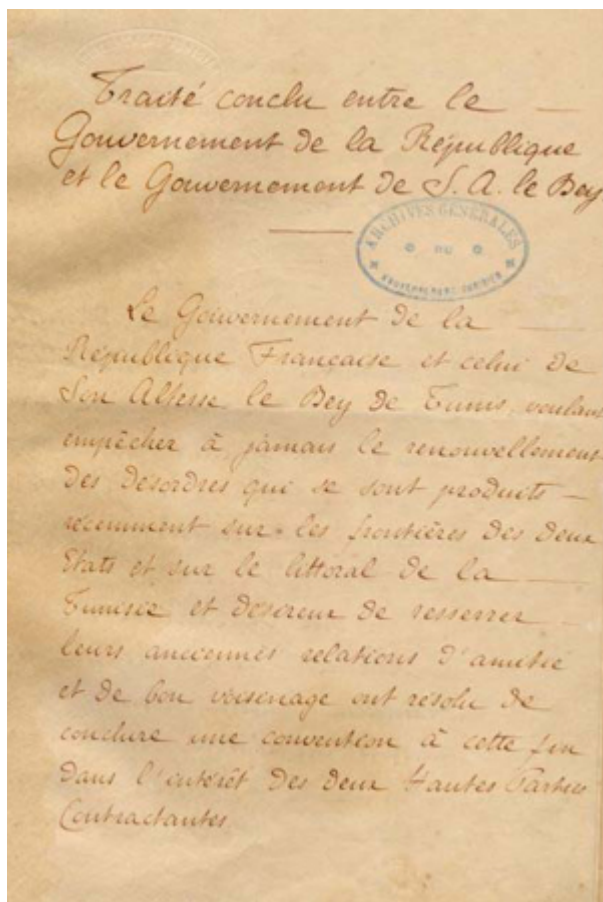 Traité conclu entre le —
Gouvernement de la République
et le Gouvernement de S. A. le Bey
ARCHIVES GENERALES
DU
GOUVERNEMENT TUNISIEN
Le Gouvernement de la —
République Française et celui de
Son Altesse le Bey de Tunis, voulant
empêcher à jamais le renouvellement
des desordres qui se sont produits —
récemment sur les frontières des deux
Etats et sur le littoral de la —
Tunisie et desireux de resserrer —
leurs anciennes relations d'amitié
et de bon voisinage ont résolu de
conclure une convention à cette fin
dans l'intérêt des deux Hautes Parties
Contractantes